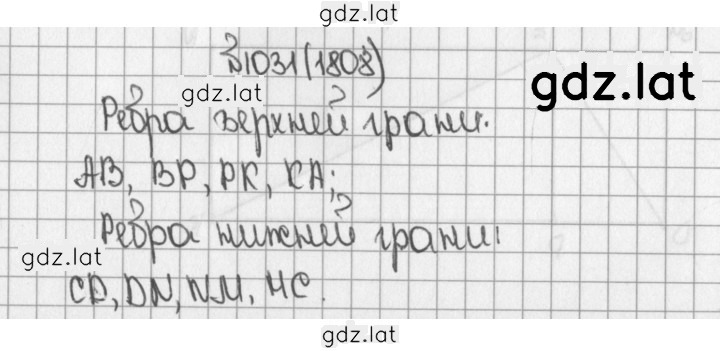 gdz.lat
№1031(1808)
gdz.lat
gdz.lat
Ребра верхней грани.
AB, BP, PK, KA;
Ребра нижней грани:
gdz.lat
CD, DN, NM, MC.
gdz.lat